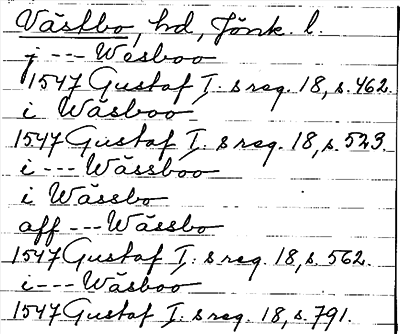 Västbo, hd, Jönk. l.
j --- Wesboo
1547 Gustaf I:s reg. 18, s. 462.
i Wäsboo
1547 Gustaf I:s reg. 18, s. 523.
i --- Wässboo
i Wässbo
aff --- Wässbo
1547 Gustaf I:s reg. 18, s. 562.
i --- Wäsboo
1547 Gustaf I:s reg. 18, s. 791.